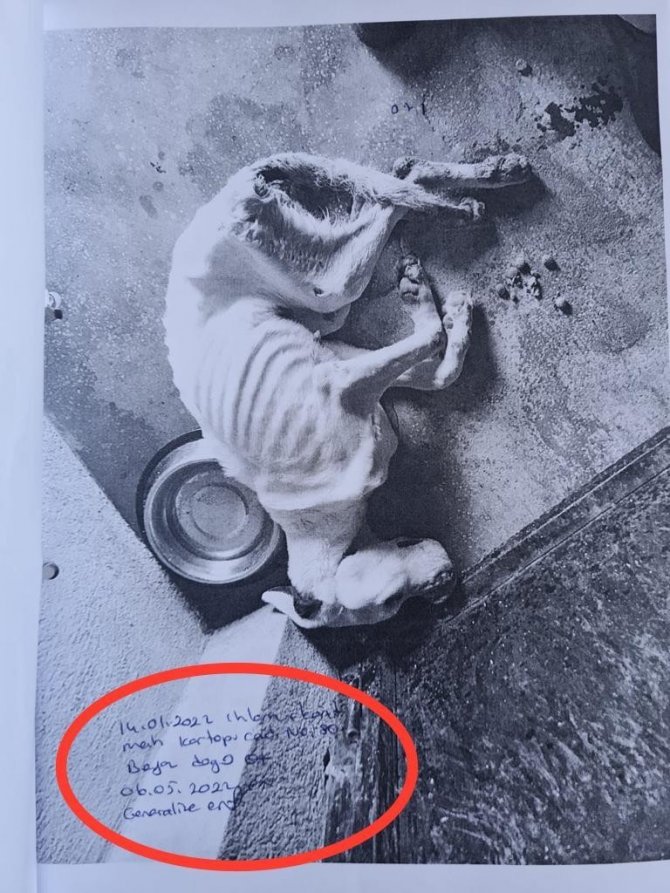 071
14.01.2022 Ihlamurkuyu
mah kartopu cad. No:
Beyaz dogo
06.05.2022
Generalize